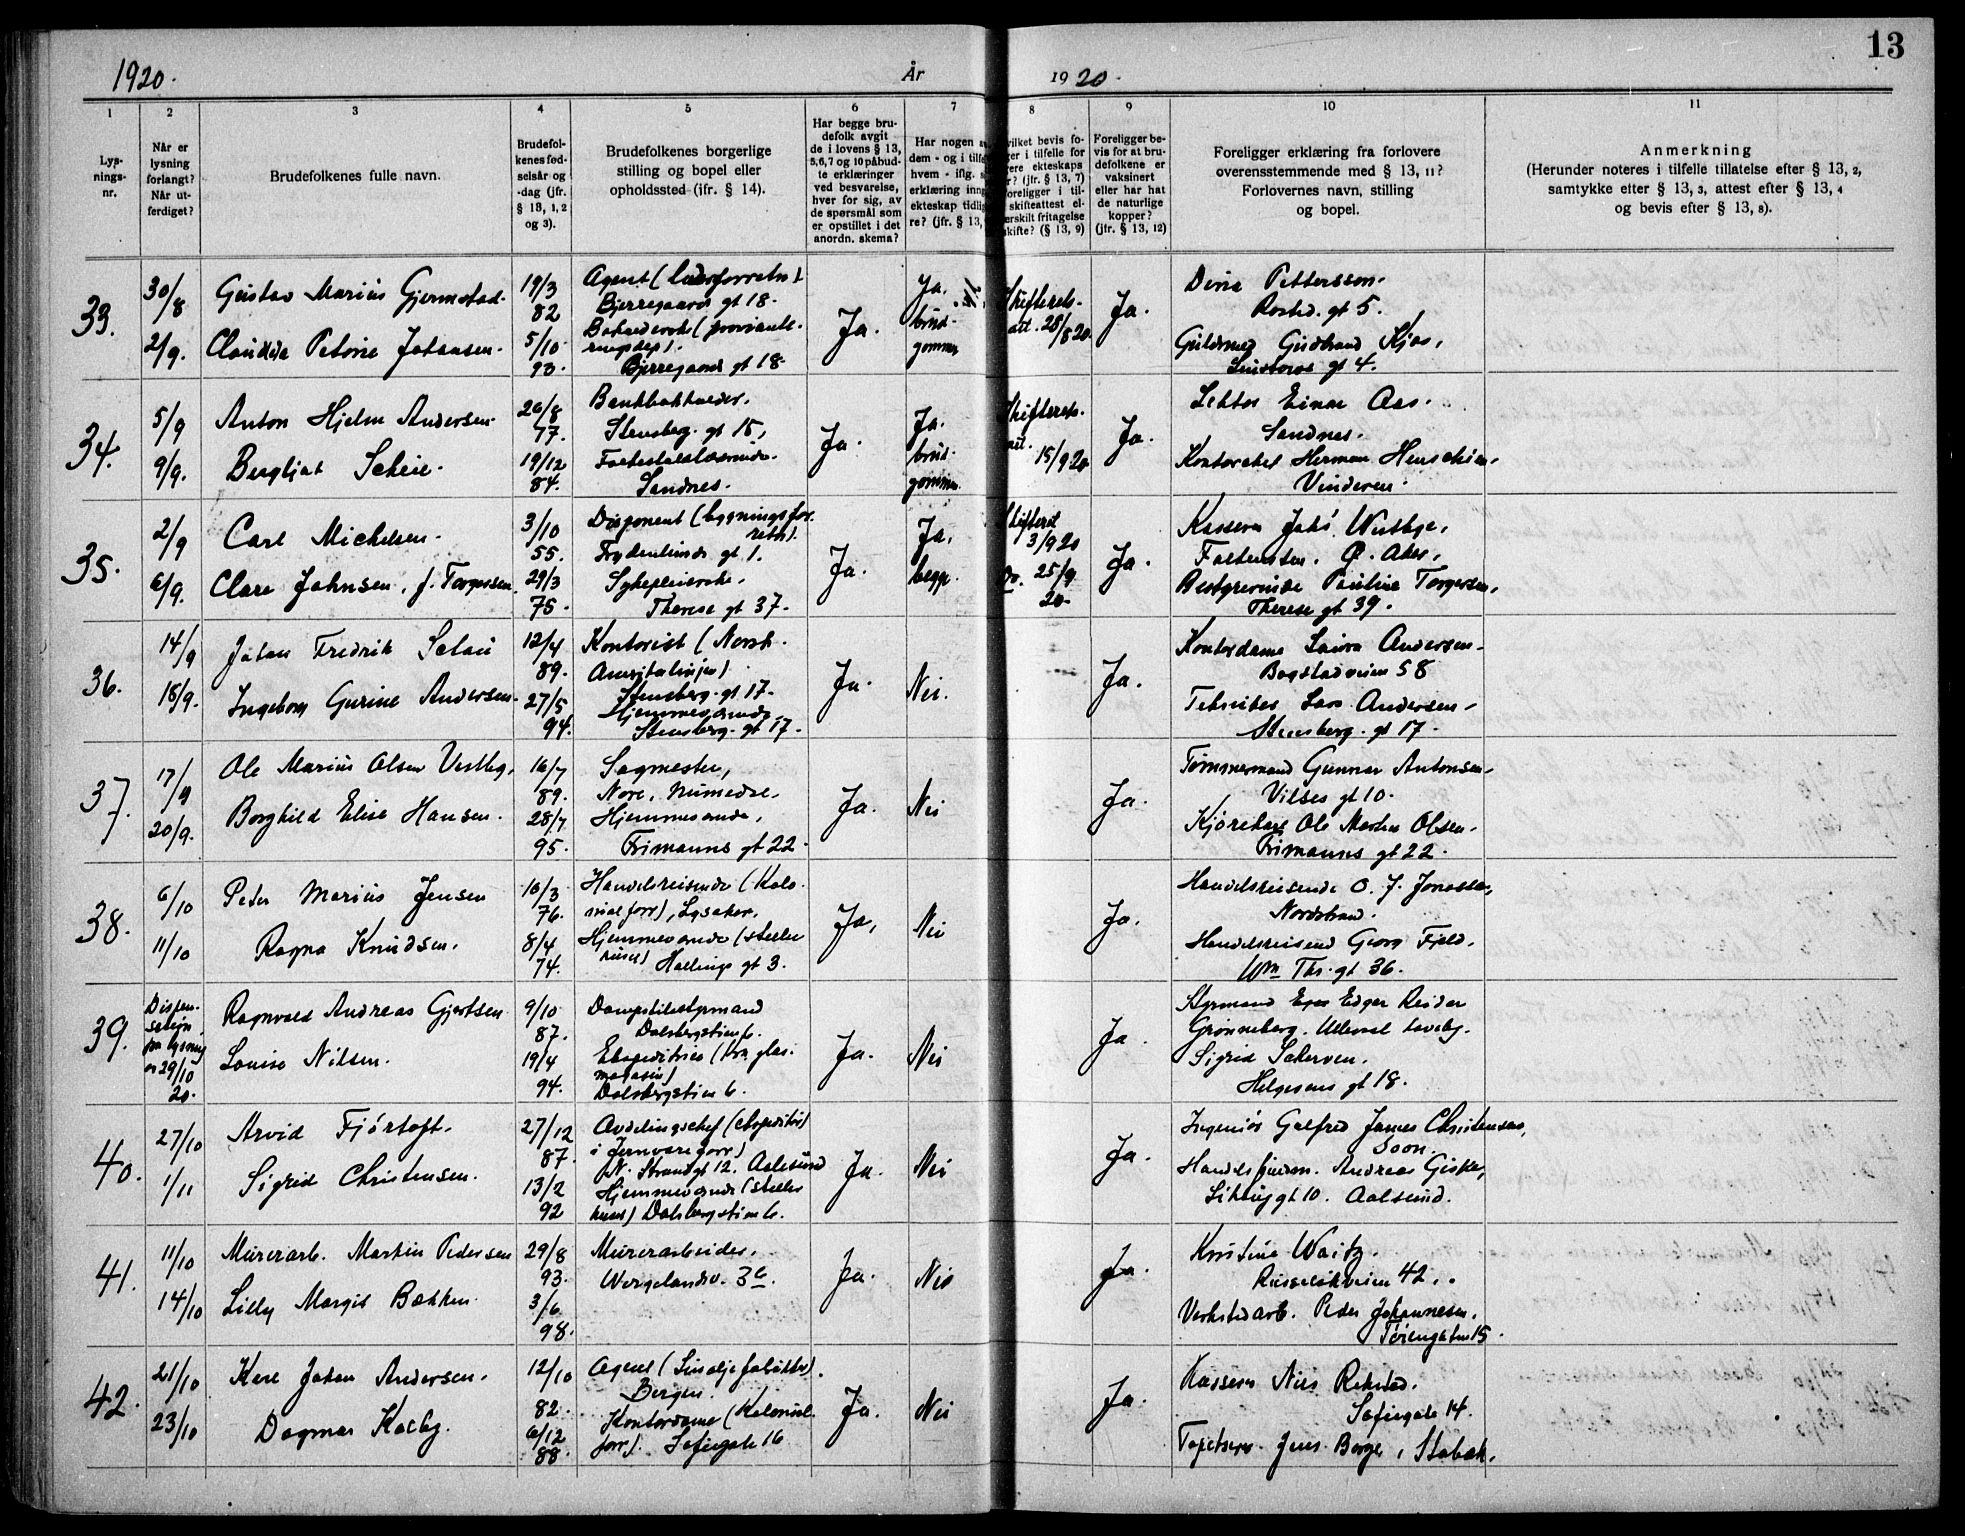 13
1920.
År
1920.
1
2
3
4
5
6
7
8
9
10
11
Lys-
nings-
nr.
Når er
lysning
forlangt?
Når ut-
ferdiget?
Brudefolkenes fulle navn.
Brudefol-
kenes fød-
selsår og
-dag (jfr.
§ 13, 1, 2
og 3).
Brudefolkenes borgerlige
stilling og bopel eller
opholdssted (jfr. § 14).
Har begge bru-
defolk avgit
de i lovens § 13,
5,6,7 og 10 påbud-
te erklæringer
ved besvarelse,
hver for sig, av
de spørsmål som
er opstillet i det
anordn. skema?
Har nogen
dem - og i tilf
hvem - iflg.
erklæring inng
ekteskap tidlig
re? (jfr. § 13,
vilket bevis fo-
ger i tilfelle for
ere ekteskaps
r? (jfr. § 13, 7)
foreligger i til-
skifteattest el-
erskilt fritagelse
skifte? (§ 13, 9)
Foreligger be-
vis for at bru-
defolkene er
vaksinert
eller har hat
de naturlige
kopper?
(jfr. § 13, 12)
Foreligger erklæring fra forlovere
overensstemmende med § 13, 11?
Forlovernes navn, stilling
og bopel.
Anmerkning
(Herunder noteres i tilfelle tillatelse efter § 13, 2,
samtykke etter § 13, 3, attest efter § 13, 4
og bevis efter § 13, 8).
33.
30/8
2/9.
Gustav Marius Gjermstad.
Petrine Johansen.
19/3
82
5/10
93.
Agent
Bjerregaards gt 18.
Bjerregaards gt 18.
Ja.
Ja.
brud-
gommen
28/8 20.
Ja.
Pettersson.
Rosted. gt 5.
Gudbrand Kjos,
gt 4.
34.
5/9
9/9.
Anton Hjelm Andersen.
Bergljot Scheie.
26/8
77.
19/12
84.
Bankbokholder.
Stensberg. gt 15,
Sandnes.
Ja.
Ja.
brud-
gommen.
15/9 20
Ja.
Lektor Einar Aas.
Sandnes.
Kontorchef Herman
Vinderen.
35.
2/9
6/9.
Carl Michelsen.
Clara Johnsen, f. Torgersen.
3/10
55.
29/3
75.
Disponent (bygningsfor-
retn).
Frydenlunds gt 1.
Sykepleierske,
Therese gt 37.
Ja.
Ja,
begge.
3/9 20
do. 25/9
20.
Ja.
Kasserer
Ø. Aker,
Pauline Torgersen,
Therese gt 39.
36.
14/9
18/9.
Johan Fredrik Schau
Ingeborg Gurine Andersen.
12/4
89.
27/5
94.
Kontorist (Norsk.
Amerikalinjen)
Stensberg. gt 17.
Hjemmeværende,
Stensberg. gt 17.
Ja.
Nei.
Ja.
Kontordame Laura Andersen.
Bogstadveien 58
Tekniker Lars Andersen.
Stensberg. gt 17.
37.
17/9
20/9.
Ole Marius Olsen Vestby.
Borghild Elise Hansen.
16/7
89.
28/7
95.
Sagmester,
Nore, Numedal.
Hjemmeværende,
Frimanns gt 22.
Ja.
Nei
Ja.
Tømmermand Gunnar Antonsen.
Vibes gt 10.
Kjørekarl Ole Martin Olsen.
Frimanns gt 22.
38.
6/10
11/10
Peter Marius Jensen
Ragna Knudsen.
10/3
76.
8/4
74.
Handelsreisende (Kolo-
nialforr), Lysaker.
Hjemmeværende (steller
huset) Hallings gt 3.
Ja,
Nei
Ja.
Handelsreisende O. J. Jonassen,
Nordstrand.
Handelsreisend Georg Fjeld.
Wm Thr. gt 36.
39.
Dispen-
sation
fra lysning
29/10
20.
Ragnvald Andreas Gjertsen
Louise Nilsen.
9/10
87.
19/4
94.
Dalsbergstien 6.
Ekspeditrice (Kra glas-
magasin)
Dalsbergstien 6.
Ja.
Nei
Ja.
Styrmand Edgar Reidar
Grønneberg. Ullevaal haveby.
Sigrid
Helgesens gt 18.
40.
27/10
1/11
Arvid Fjörtoft.
Sigrid Christensen.
27/12
87.
13/2
92
Avdelingschef (ekspeditör)
i Jernvareforr)
N. Strandgt 12. Aalesund
Hjemmeværende (steller
huset) Dalsbergstien 6.
Ja.
Nei
Ja.
Ingeniör James Christensen,
Soon.
Andreas Giske,
gt 10. Aalesund.
41.
11/10
14/10
Murerarb. Martin Pedersen
Lilly Margit Bakken.
29/8
93.
3/6
98.
Murerarbeider.
Wergelandsv. 3
Ja.
Nei
Ja.
Kristine Waitz.
Russeløkveien 42.
Verkstedarb. Peder Johannesen.
Tøiengaten 15.
42.
21/10
23/10
Johan Andersen.
Dagmar Kolby.
12/10
82.
6/12
88.
Agent (Linoljefabikker).
Bergen.
Kontordame (Kolonial-
forr). Sofiegate 16
Ja.
Nei
Ja.
Kasserer Nils Rekstad.
Sofiegate 14.
Tapetserer Jens Borge, Stabæk.